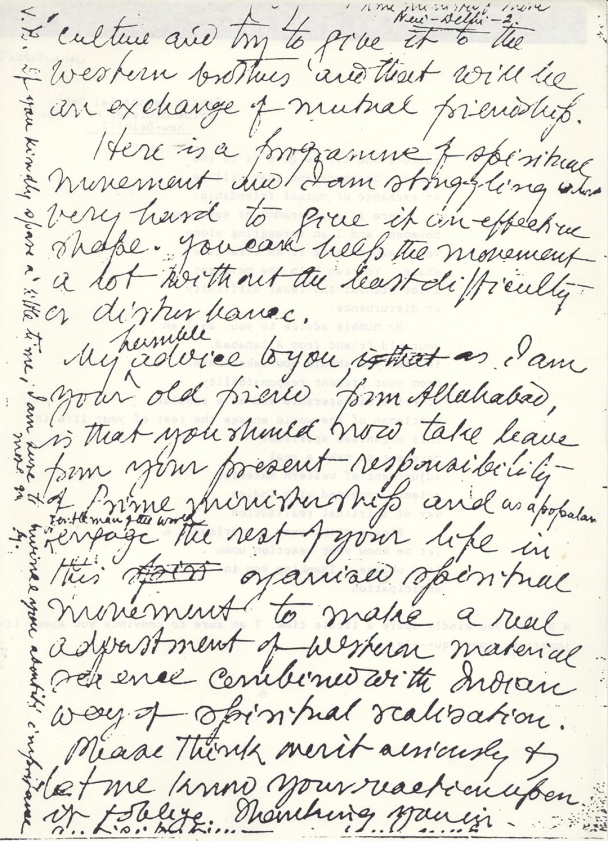 Prime minister's house
New-Delhi-2.
culture and try to give it to the
western brothers and that will be
an exchange of mutual friendship.
Here is a programme of spiritual
movement and I am struggling alone
very hard to give it an effective
shape. You can help the movement
a lot without the least difficulty
or disturbance.
My humble advice to you is that as I am
your old friend from Allahabad,
is that you should now take leave
from your present responsibility
of Prime ministership and as a popular
gentleman of the world
engage the rest of your life in
this organised spiritual
movement to make a real
adjustment of western material
science combined with Indian
way of spiritual realisation.
Please think over it seriously &
let me know your reaction upon
it & oblige. Thanking you in
N.B. If you kindly spare a little time, I am sure to convince you about its importance
more in